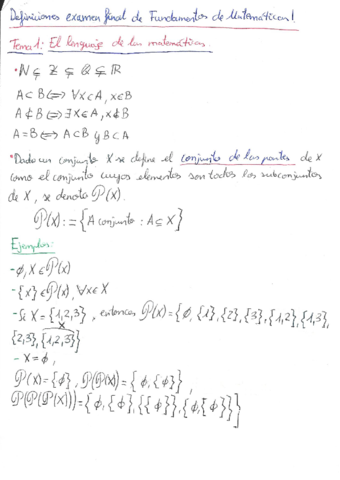 Definiciones examen final de Fundamentos de Matemáticas I
Tema 1: El lenguaje de las matemáticas
• ℕ ⊊ ℤ ⊊ ℚ ⊊ ℝ
A ⊂ B ⟺ ∀x∈A, x∈B
A ⊄ B ⟺ ∃x∈A, x∉B
A = B ⟺ A ⊂ B y B ⊂ A
• Dado un conjunto X se define el conjunto de las partes de X
como el conjunto cuyos elementos son todos los subconjuntos
de X, se denota P(X).
P(X) := {A conjunto : A ⊆ X}
Ejemplos:
- ∅, X ∈ P(X)
- {x} ∈ P(X), ∀x∈X
- Si X = {1,2,3}, entonces P(X) = {∅, {1}, {2}, {3}, {1,2}, {1,3},
{2,3}, {1,2,3}}
X
- X = ∅,
P(X) = {∅}, P(P(X)) = {∅, {∅}},
P(P(P(X))) = {∅, {∅}, {{∅}}, {∅, {∅}}}